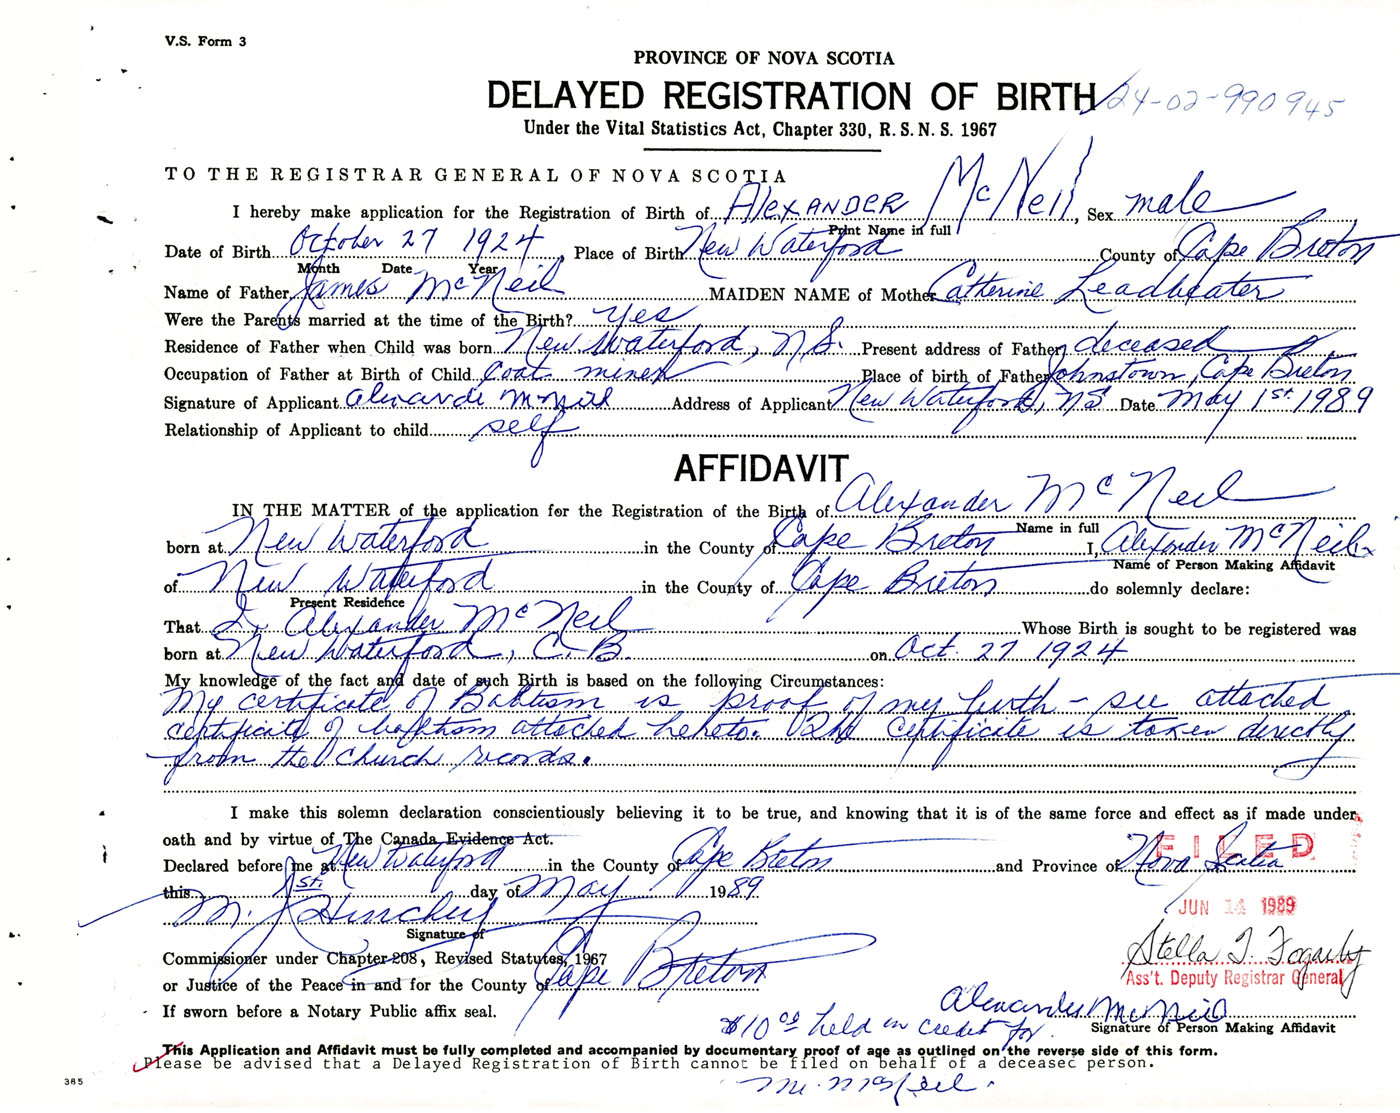 V.S. Form 3
PROVINCE OF NOVA SCOTIA
DELAYED REGISTRATION OF BIRTH 24-02-990945
Under the Vital Statistics Act, Chapter 330, R. S. N. S. 1967
TO THE REGISTRAR GENERAL OF NOVA SCOTIA
I hereby make application for the Registration of Birth of AlexANDER McNeil, Sex male
Print Name in full
Date of Birth October 27 1924, Place of Birth New Waterford County of Cape Breton
Month Date Year
Name of Father James McNeil MAIDEN NAME of Mother Catherine Leadbeater
Were the Parents married at the time of the Birth? yes
Residence of Father when Child was born New Waterford, N.S. Present address of Father deceased
Occupation of Father at Birth of Child Coal miner Place of birth of Father Johnstown, Cape Breton
Signature of Applicant Alexander McNeil Address of Applicant New Waterford, NS Date May 1st 1989
Relationship of Applicant to child self
AFFIDAVIT
IN THE MATTER of the application for the Registration of the Birth of Alexander McNeil
Name in full
born at New Waterford in the County of Cape Breton I, Alexander McNeil
Name of Person Making Affidavit
of New Waterford in the County of Cape Breton do solemnly declare:
Present Residence
That I, Alexander McNeil Whose Birth is sought to be registered was
born at New Waterford, C.B. on Oct. 27 1924
My knowledge of the fact and date of such Birth is based on the following Circumstances:
My certificate of Babtism is proof of my birth - see attached
certificate of baptism attached hereto. The certificate is taken directly
from the church records.
I make this solemn declaration conscientiously believing it to be true, and knowing that it is of the same force and effect as if made under
oath and by virtue of The Canada Evidence Act.
FILED
Declared before me at New Waterford in the County of Cape Breton and Province of Nova Scotia
this 1st. day of May 1989
JUN 14 1989
M. J. Hinchey
Signature of
Stella T. Fogarty
Commissioner under Chapter 208, Revised Statutes, 1967
Ass't. Deputy Registrar General
or Justice of the Peace in and for the County of Cape Breton
If sworn before a Notary Public affix seal.
Alexander McNeil
Signature of Person Making Affidavit
$10.00 held in credit for
This Application and Affidavit must be fully completed and accompanied by documentary proof of age as outlined on the reverse side of this form.
Please be advised that a Delayed Registration of Birth cannot be filed on behalf of a deceased person.
Mr. McNeil.
385